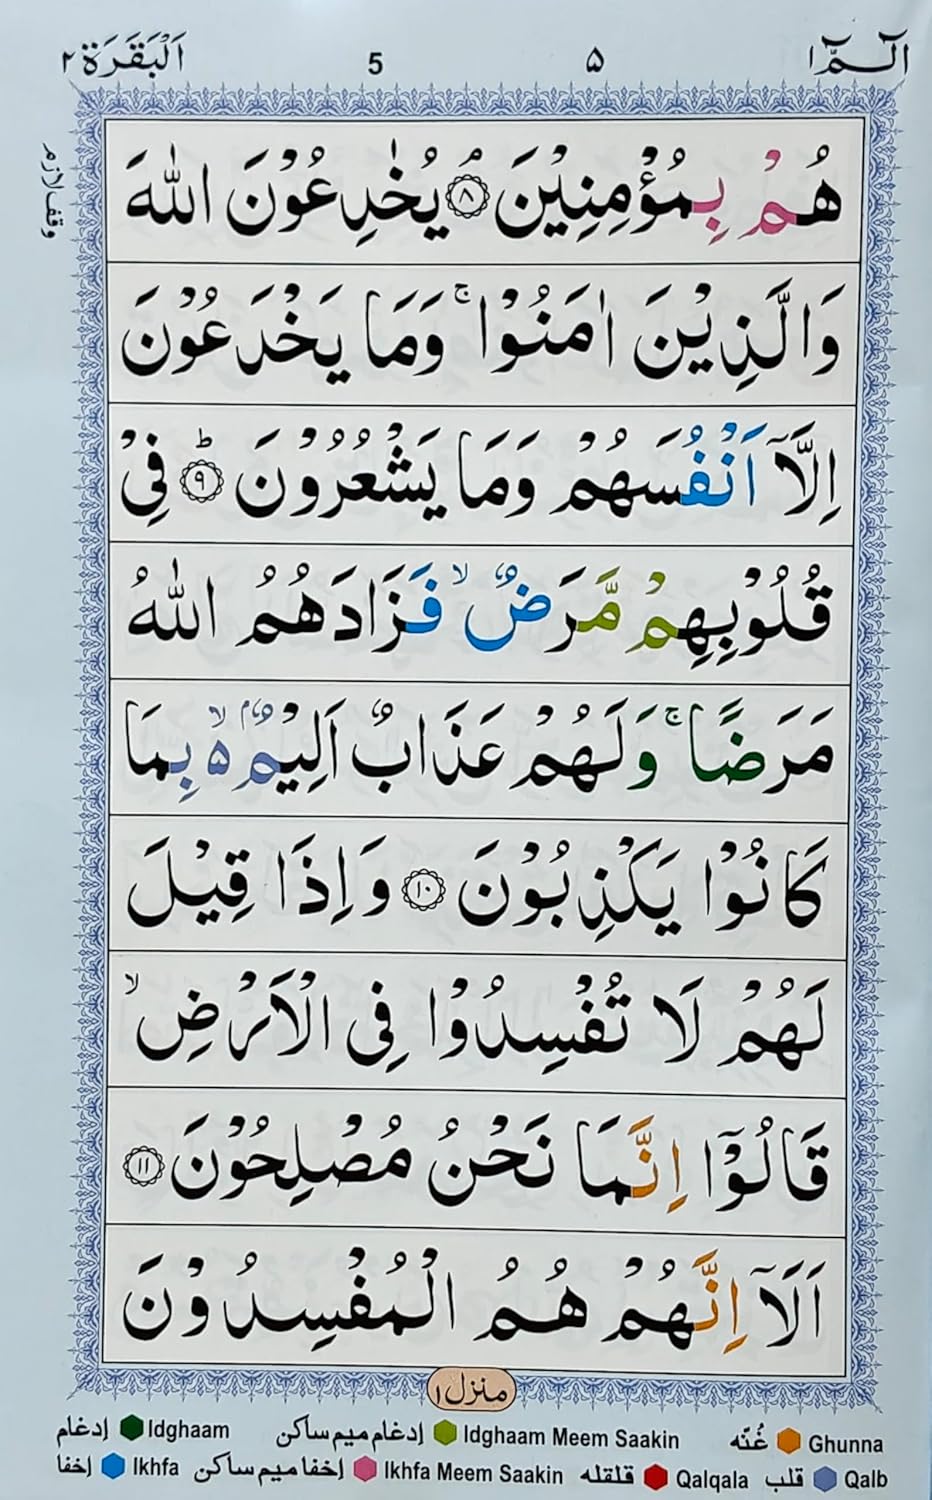 الٓـمّٓ ١ ۵ 5 اَلْبَقَرَة ٢
وقف لازم
هُمْ بِمُؤْمِنِيْنَ ۘ ٨ يُخٰدِعُوْنَ اللّٰهَ
وَالَّذِيْنَ اٰمَنُوْا ۚ وَمَا يَخْدَعُوْنَ
اِلَّاۤ اَنْفُسَهُمْ وَمَا يَشْعُرُوْنَ ؕ ٩ فِىْ
قُلُوْبِهِمْ مَّرَضٌ ۙ فَزَادَهُمُ اللّٰهُ
مَرَضًا ۚ وَلَهُمْ عَذَابٌ اَلِيْمٌۢ ۙ۵ بِمَا
كَانُوْا يَكْذِبُوْنَ ١٠ وَاِذَا قِيْلَ
لَهُمْ لَا تُفْسِدُوْا فِى الْاَرْضِ ۙ
قَالُوْۤا اِنَّمَا نَحْنُ مُصْلِحُوْنَ ١١
اَلَاۤ اِنَّهُمْ هُمُ الْمُفْسِدُوْنَ
منزل ١
إدغام Idghaam إدغام ميم ساكن Idghaam Meem Saakin غُنّه Ghunna
إخفا Ikhfa إخفا ميم ساكن Ikhfa Meem Saakin قلقله Qalqala قلب Qalb